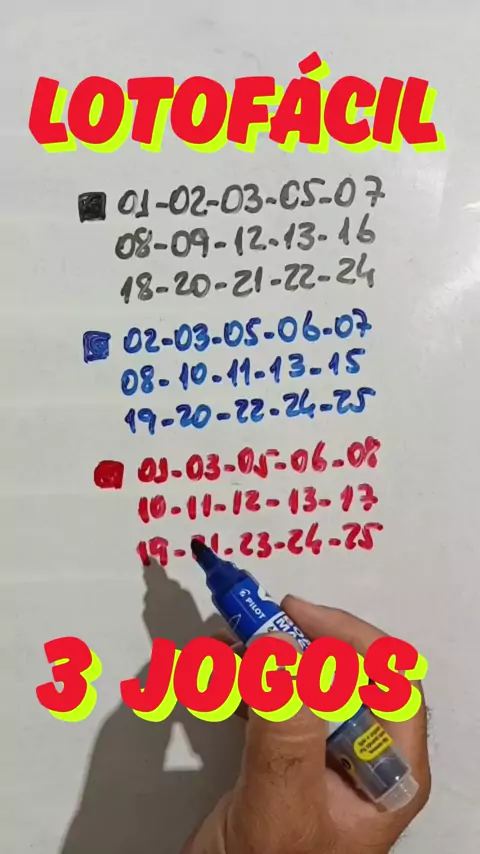 LOTOFÁCIL
01-02-03-05-07
08-09-12-13-16
18-20-21-22-24
02-03-05-06-07
08-10-11-13-15
19-20-22-24-25
01-03-05-06-08
10-11-12-13-17
19-21-23-24-25
PILOT
3 JOGOS